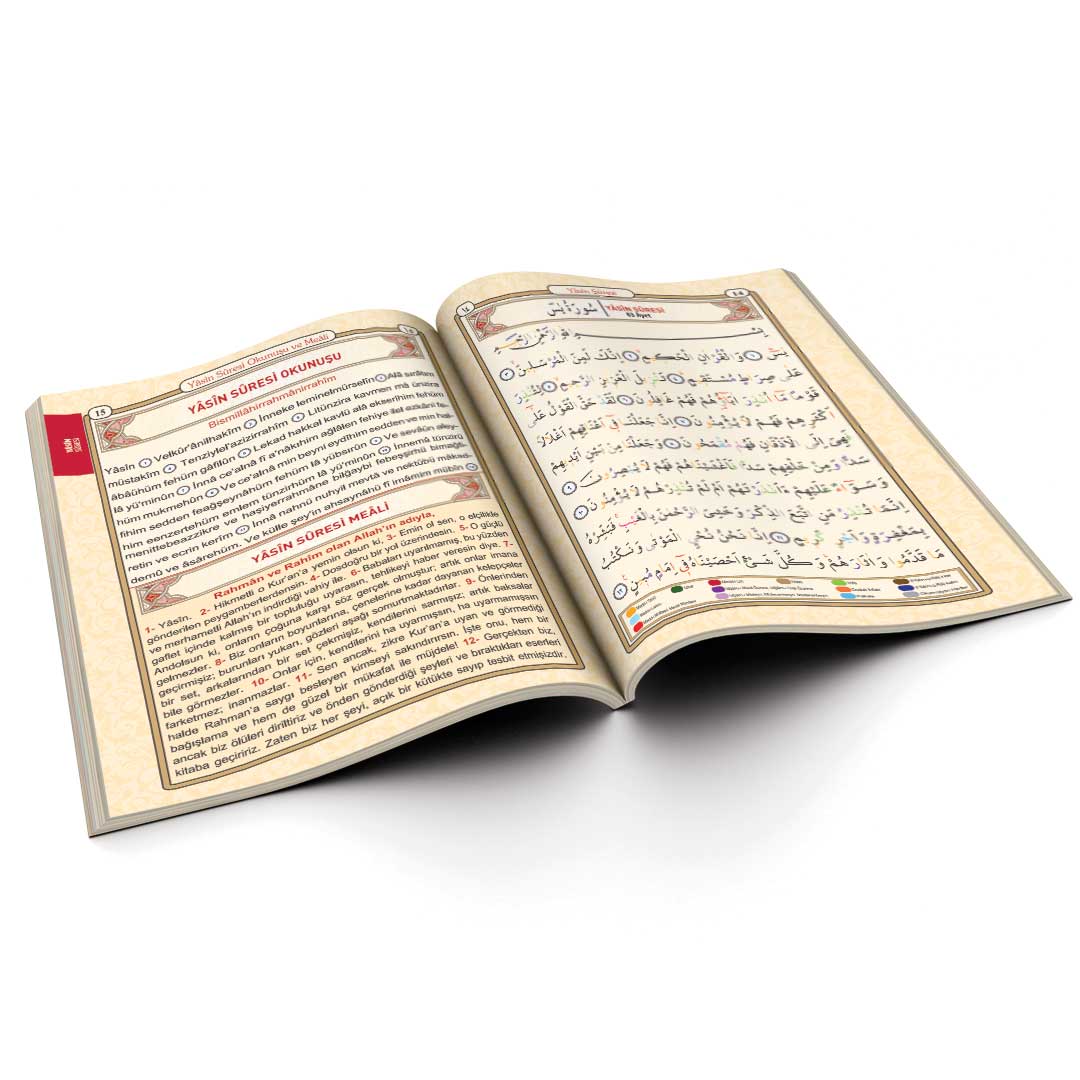 ١٤
Yâsin Sûresi
14
سُورَةُ يٰسٓ
YÂSİN SÛRESİ
83 Ayet
يٰسٓ ﴿١﴾ وَالْقُرْاٰنِ الْحَك۪يمِ ﴿٢﴾ اِنَّكَ لَمِنَ الْمُرْسَل۪ينَ ﴿٣﴾
عَلٰى صِرَاطٍ مُسْتَق۪يمٍ ﴿٤﴾ تَنْز۪يلَ الْعَز۪يزِ الرَّح۪يمِ ﴿٥﴾ لِتُنْذِرَ
قَوْمًا مَٓا اُنْذِرَ اٰبَٓاؤُ۬هُمْ فَهُمْ غَافِلُونَ ﴿٦﴾ لَقَدْ حَقَّ الْقَوْلُ عَلٰٓى
اَكْثَرِهِمْ فَهُمْ لَا يُؤْمِنُونَ ﴿٧﴾ اِنَّا جَعَلْنَا ف۪ٓي اَعْنَاقِهِمْ اَغْلَالًا
فَهِيَ اِلَى الْاَذْقَانِ فَهُمْ مُقْمَحُونَ ﴿٨﴾ وَجَعَلْنَا مِنْ بَيْنِ اَيْد۪يهِمْ
سَدًّا وَمِنْ خَلْفِهِمْ سَدًّا فَاَغْشَيْنَاهُمْ فَهُمْ لَا يُبْصِرُونَ ﴿٩﴾
وَسَوَٓاءٌ عَلَيْهِمْ ءَاَنْذَرْتَهُمْ اَمْ لَمْ تُنْذِرْهُمْ لَا يُؤْمِنُونَ ﴿١٠﴾
اِنَّمَا تُنْذِرُ مَنِ اتَّبَعَ الذِّكْرَ وَخَشِيَ الرَّحْمٰنَ بِالْغَيْبِۚ فَبَشِّرْهُ
بِمَغْفِرَةٍ وَاَجْرٍ كَر۪يمٍ ﴿١١﴾ اِنَّا نَحْنُ نُحْيِ الْمَوْتٰى وَنَكْتُبُ
مَا قَدَّمُوا وَاٰثَارَهُمْۜ وَكُلَّ شَيْءٍ اَحْصَيْنَاهُ ف۪ٓي اِمَامٍ مُب۪ينٍ۟ ﴿١٢﴾
15
Yâsin Sûresi Okunuşu ve Meâli
YÂSİN SÛRESİ
YÂSÎN SÛRESİ OKUNUŞU
Bismillâhirrahmânirrahîm
Yâsîn 1 Velkur'ânilhakîm 2 İnneke leminelmürselîn 3 Alâ sırâtım
müstakîm 4 Tenziylel'azizirrahîm 5 Litünzira kavmen mâ ünzira
âbâühüm fehüm gâfilûn 6 Lekad hakkal kavlü alâ ekserihim fehüm
lâ yü'minûn 7 İnnâ ce'alnâ fî a'nâkıhim ağlâlen fehiye ilel ezkâni fe-
hüm mukmehûn 8 Ve ce'alnâ min beyni eydîhim sedden ve min hal-
fihim sedden feağşeynâhüm fehüm lâ yübsırûn 9 Ve sevâün aley-
him eenzertehüm emlem tünzirhüm lâ yü'minûn 10 İnnemâ tünzirü
menittebeazzikre ve haşiyerrahmâne bilğaybi febeşşirhü bimağfi-
retin ve ecrin kerîm 11 İnnâ nahnü nuhyil mevtâ ve nektübü mâkad-
demû ve âsârehüm. Ve külle şey'in ahsaynâhü fî imâmim mübîn 12
YÂSÎN SÛRESİ MEÂLİ
Rahmân ve Rahîm olan Allah'ın adıyla,
1- Yâsîn. 2- Hikmetli o Kur'an'a yemin olsun ki, 3- Emin ol sen, o elçilikle
gönderilen peygamberlerdensin. 4- Dosdoğru bir yol üzerindesin. 5- O güçlü
ve merhametli Allah'ın indirdiği vahiy ile. 6- Babaları uyarılmamış, bu yüzden
gaflet içinde kalmış bir topluluğu uyarasın, tehlikeyi haber veresin diye. 7-
Andolsun ki, onların çoğuna karşı söz gerçek olmuştur; artık onlar imana
gelmezler. 8- Biz onların boyunlarına, çenelerine kadar dayanan kelepçeler
geçirmişiz; burunları yukarı, gözleri aşağı somurtmaktadırlar. 9- Önlerinden
bir set, arkalarından bir set çekmişiz, kendilerini sarmışız; artık baksalar
bile görmezler. 10- Onlar için, kendilerini ha uyarmışsın, ha uyarmamışsın
farketmez; inanmazlar. 11- Sen ancak, zikre Kur'an'a uyan ve görmediği
halde Rahman'a saygı besleyen kimseyi sakındırırsın. İşte onu, hem bir
bağışlama ve hem de güzel bir mükafat ile müjdele! 12- Gerçekten biz,
ancak biz ölüleri diriltiriz ve önden gönderdiği şeyleri ve bıraktıkları eserleri
kitaba geçiririz. Zaten biz her şeyi, açık bir kütükte sayıp tesbit etmişizdir.